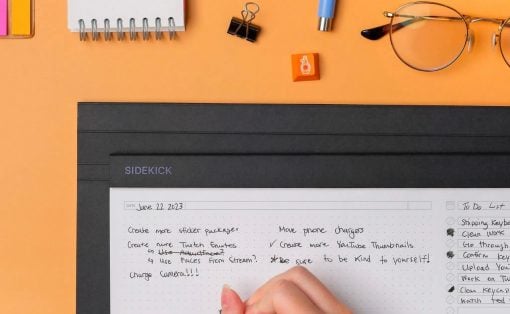 SIDEKICK
DATE June 22 2023
Create more sticker packages
Create more Twitch Emotes
↳ Use Faces from Stream?
Charge Camera!!!
Move phone charger
✓ Create more YouTube Thumbnails
Be sure to be kind to yourself!
To Do List
Shipping Keyb
Clean Work
Go through
Confirm Key
Upload You
Work on Tw
Clean Keycap